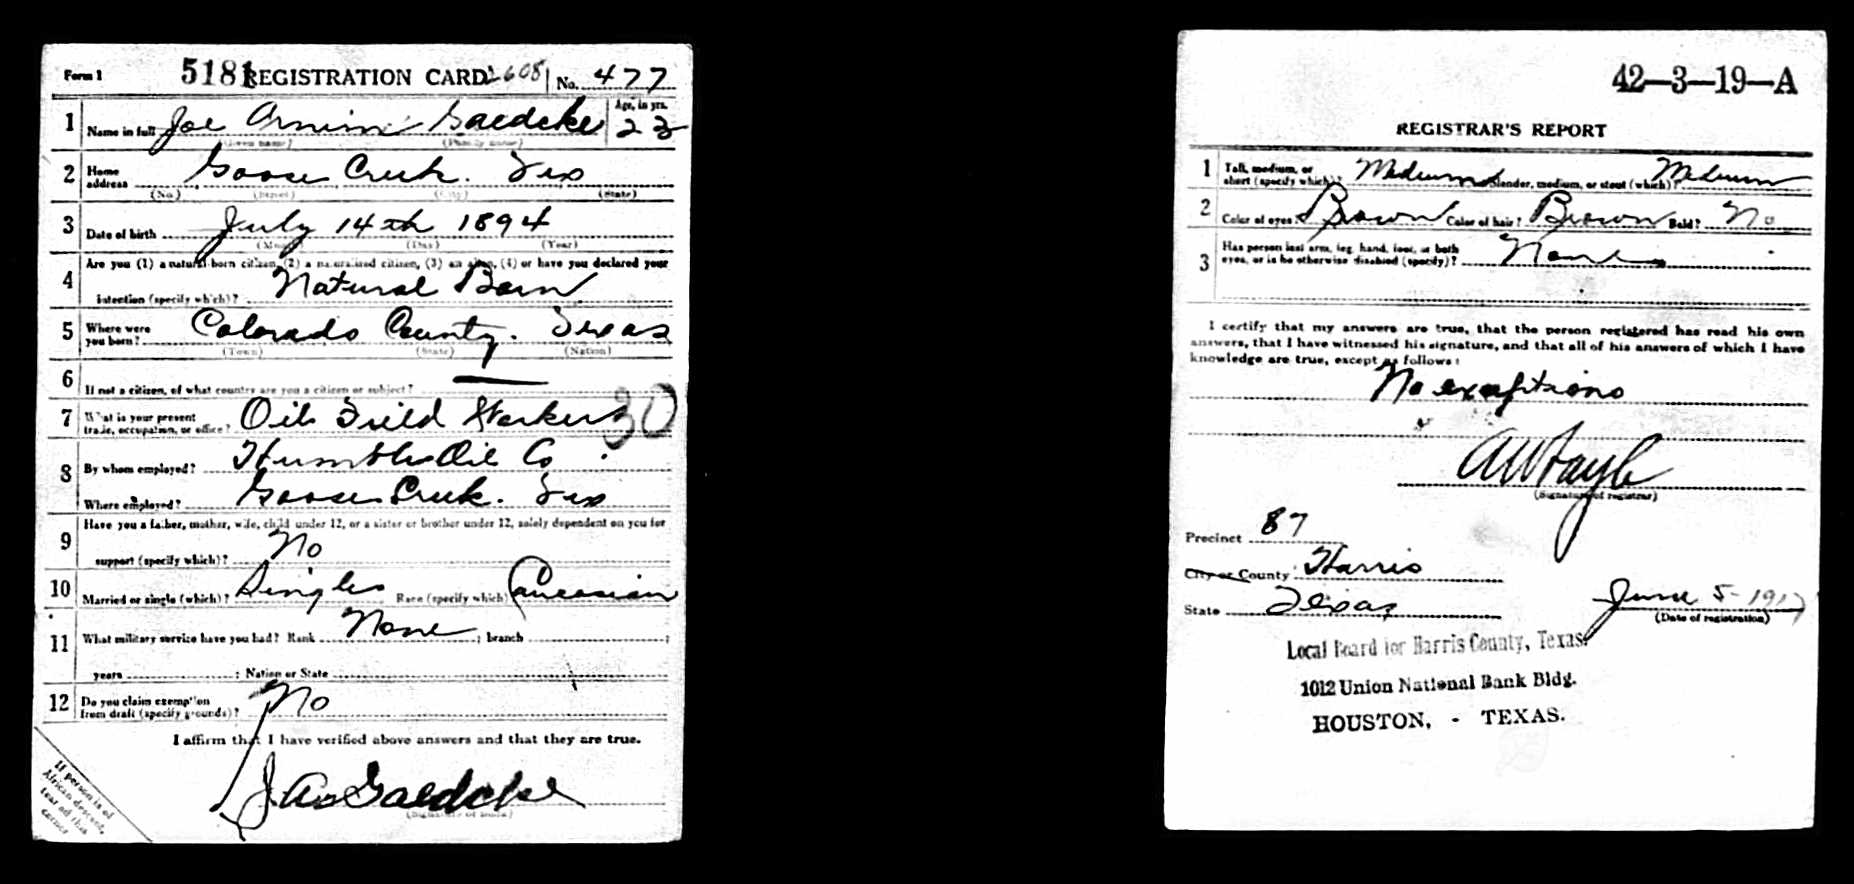 Form 1 5181 REGISTRATION CARD 2608 No. 477
1 Name in full Joe Armin Gaedcke Age, in yrs. 23
(Given name) (Family name)
2 Home address Goose Creek. Tex
(No.) (Street) (City) (State)
3 Date of birth July 14th 1894
(Month) (Day) (Year)
4 Are you (1) a natural-born citizen, (2) a naturalized citizen, (3) an alien, (4) or have you declared your
intention (specify which)? Natural Born
5 Where were you born? Colorado County. Texas
(Town) (State) (Nation)
6 If not a citizen, of what country are you a citizen or subject? —
7 What is your present trade, occupation, or office? Oil Field Worker 30
8 By whom employed? Humble Oil Co.
Where employed? Goose Creek. Tex
9 Have you a father, mother, wife, child under 12, or a sister or brother under 12, solely dependent on you for
support (specify which)? No
10 Married or single (which)? Single Race (specify which)? Caucasian
11 What military service have you had? Rank None ; branch ;
years ; Nation or State
12 Do you claim exemption from draft (specify grounds)? No
I affirm that I have verified above answers and that they are true.
J A Gaedcke
If person is of
African descent,
tear off this
corner
42—3—19—A
REGISTRAR'S REPORT
1 Tall, medium, or short (specify which)? Medium Slender, medium, or stout (which)? Medium
2 Color of eyes? Brown Color of hair? Brown Bald? No
3 Has person lost arm, leg, hand, foot, or both
eyes, or is he otherwise disabled (specify)? None
I certify that my answers are true, that the person registered has read his own
answers, that I have witnessed his signature, and that all of his answers of which I have
knowledge are true, except as follows:
No exceptions
(Signature of registrar)
Precinct 87
City or County Harris
State Texas June 5-1917
(Date of registration)
Local Board for Harris County, Texas.
1012 Union National Bank Bldg.
HOUSTON, - TEXAS.